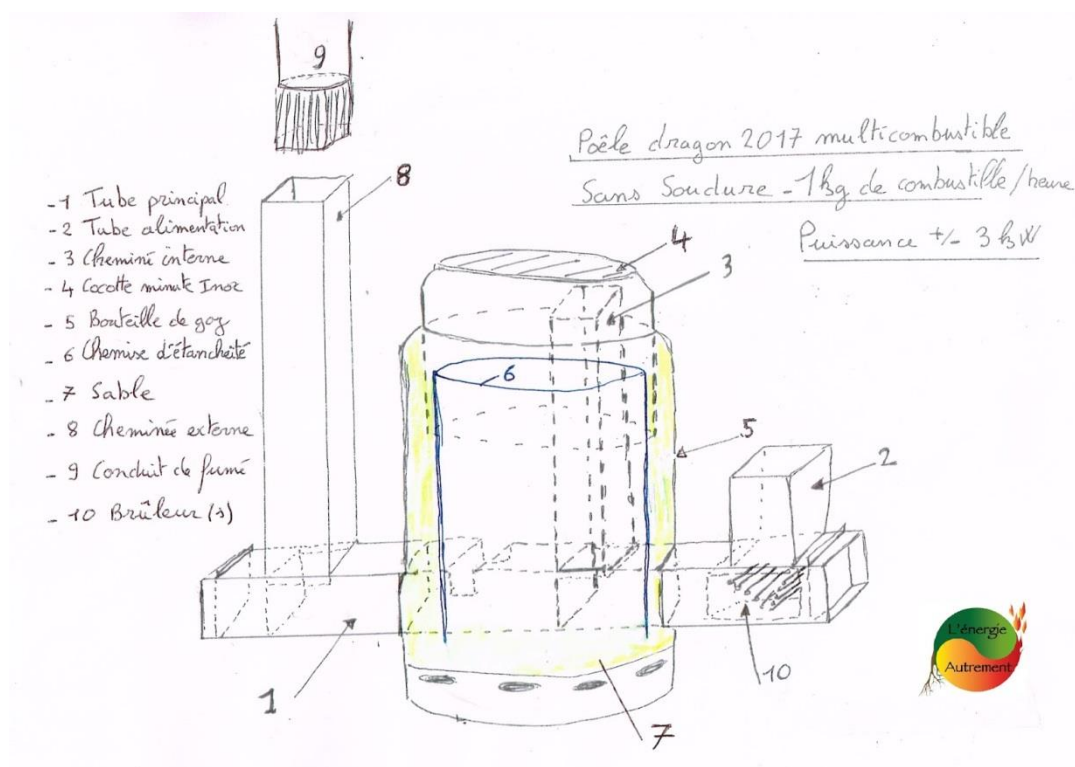 9
Poêle dragon 2017 multicombustible
Sans Soudure - 1kg de combustille/heure
Puissance +/- 3 kW
- 1 Tube principal
- 2 Tube alimentation
- 3 Cheminé interne
- 4 Cocotte minute Inox
- 5 Bouteille de gaz
- 6 Chemise d'étanchéité
- 7 Sable
- 8 Cheminée externe
- 9 Conduit de fumé
- 10 Brûleur (s)
8
4
3
6
5
2
1
10
7
L'énergie
Autrement